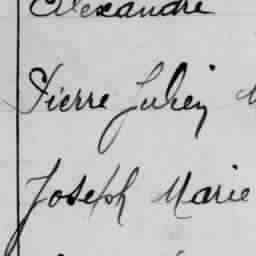 Alexandre
Pierre Julien
Joseph Marie